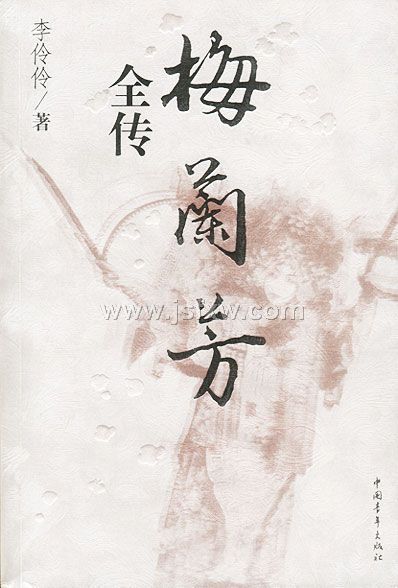 李伶伶/著
梅蘭芳
全传
www.jsbkw.com
中国青年出版社